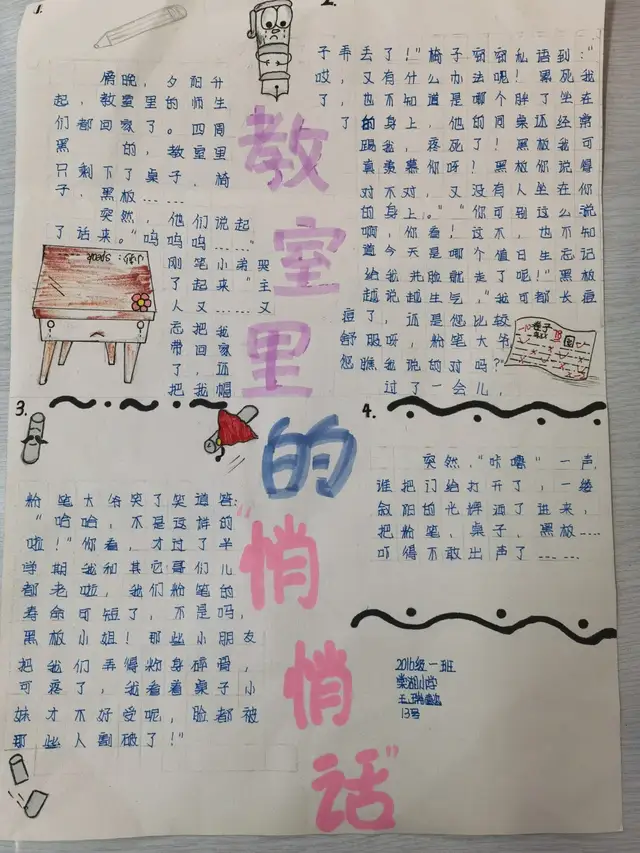 教室里的"悄悄话"
1.
傍晚，夕阳升
起，教室里的师生
们都回家了。四周
黑 的，教室里
只剩下了桌子、椅
子、黑板……
突然，他们说起
了话来。"呜呜呜……"
刚笔小弟哭
了起来"主
人又……又
忘把我
带回家
了，还
把我帽
2.
子弄丢了！"椅子窃窃私语到："
哎，又有什么办法呢！累死我
了，也不知道是哪个胖了坐在
了的身上，他的同桌还经常
踢我，疼死了！黑板我可
真羡慕你呀！黑板你说得
对不对，又没有人坐在你
的身上。""你可别这么说
啊，你看！这不，也不知
道今天是哪个值日生忘记
给我洗脸就走了呢！"黑板
越说越生气，"我可都长痘
痘了，还是他比较
舒服呀，粉笔大爷
您瞧我说的对吗？"
过了一会儿，
3.
粉笔大爷笑了笑道答：
"哈哈，不是这样的
啦！"你看，才过了半
学期我和其它哥们儿
都老啦，我们粉笔的
寿命可短了，不是吗，
黑板小姐！那些小朋友
把我们弄得粉身碎骨，
可疼了，我看着桌子小
妹才不好受呢，脸都被
那些人割破了！"
4.
突然，"咔噜"一声，
谁把门给打开了，一缕
阳的光辉洒了进来，
把粉笔，桌子，黑板……
吓得不敢出声了……
2016级一班
棠湖小学
13号